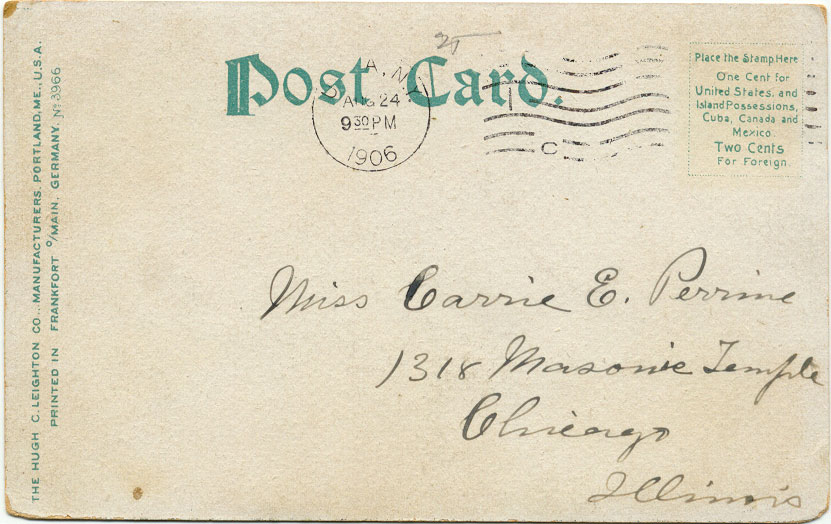 Post Card.
A, N.Y.
AUG 24
9 30 PM
1906
C
Place the Stamp Here
One Cent for
United States, and
Island Possessions,
Cuba, Canada and
Mexico.
Two Cents
For Foreign
Miss Carrie E. Perrine
1318 Masonic Temple
Chicago
Illinois
THE HUGH C. LEIGHTON CO., MANUFACTURERS, PORTLAND, ME., U.S.A.
PRINTED IN FRANKFORT o/MAIN, GERMANY. No 3966